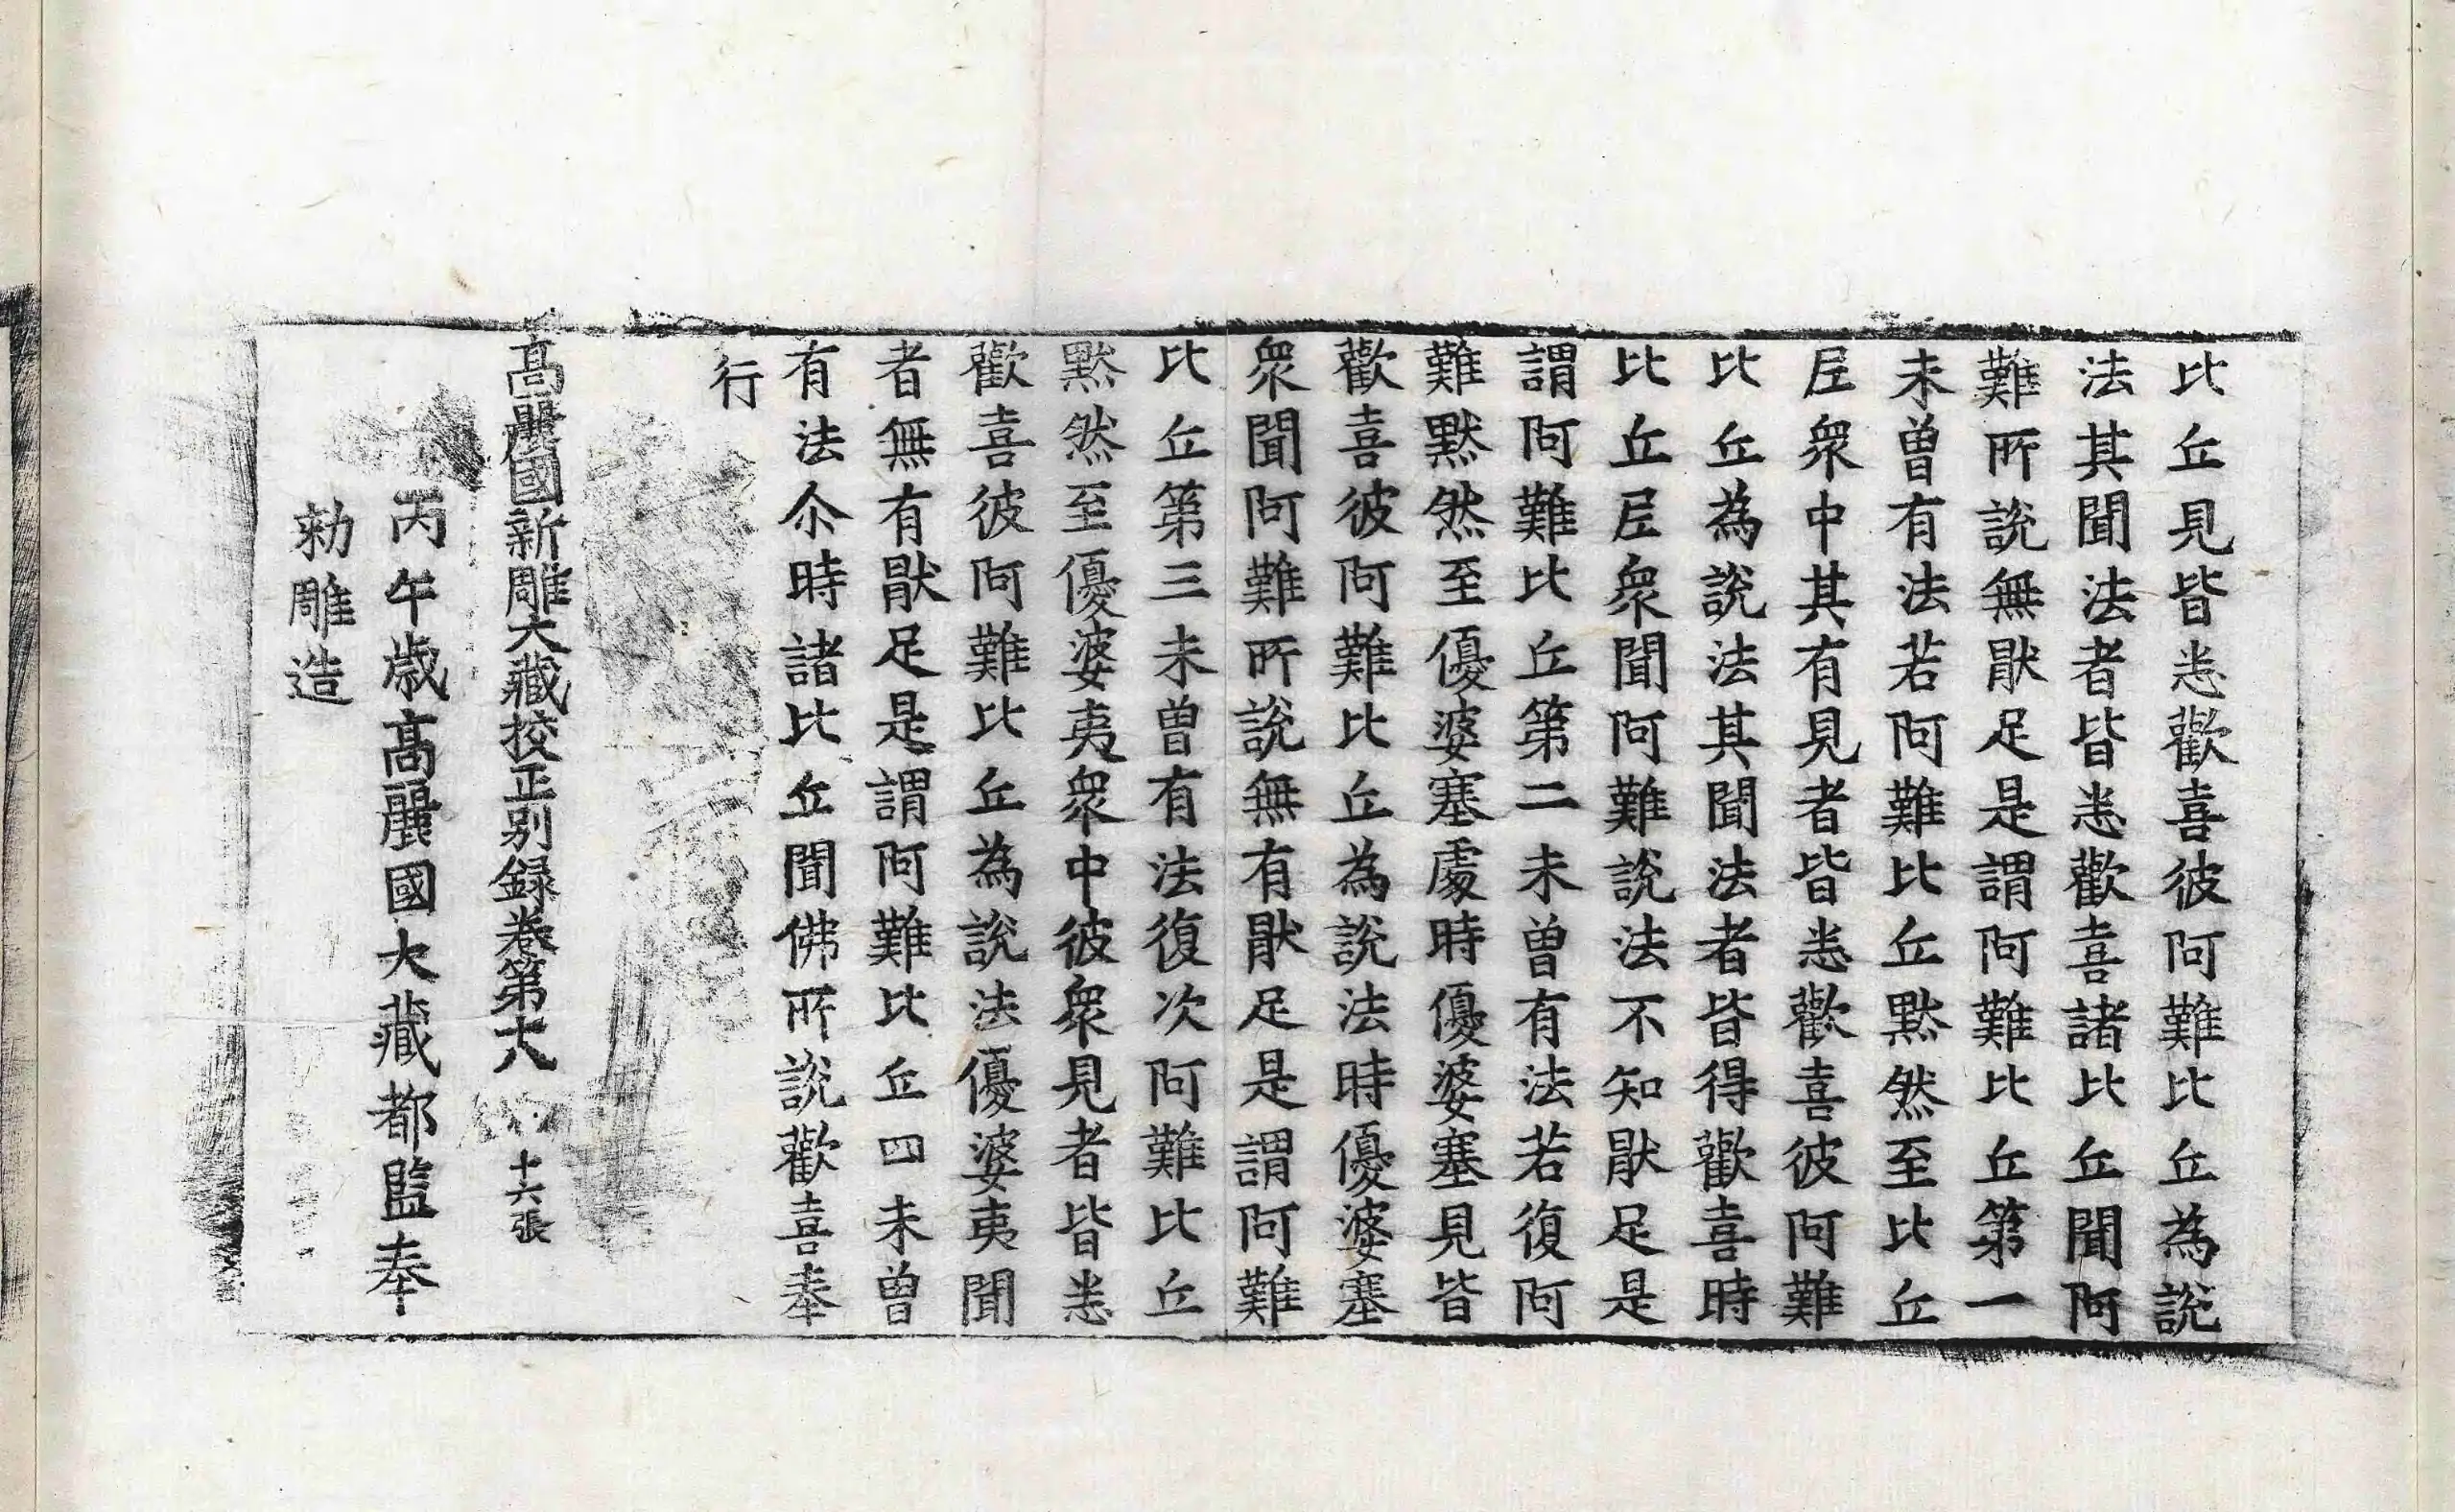 比丘見皆悉歡喜彼阿難比丘為說
法其聞法者皆悉歡喜諸比丘聞阿
難所說無猒足是謂阿難比丘第一
未曾有法若阿難比丘黙然至比丘
𡰱衆中其有見者皆悉歡喜彼阿難
比丘為說法其聞法者皆得歡喜時
比丘𡰱衆聞阿難說法不知猒足是
謂阿難比丘第二未曾有法若復阿
難黙然至優婆塞處時優婆塞見皆
歡喜彼阿難比丘為說法時優婆塞
衆聞阿難所說無有猒足是謂阿難
比丘第三未曾有法復次阿難比丘
黙然至優婆夷衆中彼衆見者皆悉
歡喜彼阿難比丘為說法優婆夷聞
者無有猒足是謂阿難比丘四未曾
有法尒時諸比丘聞佛所說歡喜奉
行
高麗國新雕大藏校正別録卷第十八 十六張
丙午歳高麗國大藏都監奉
勑雕造